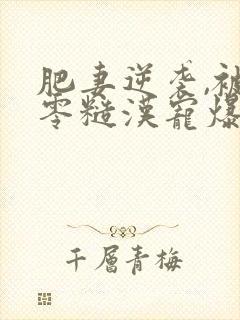 肥妻逆袭,被
零糙漢寵爆
千層青梅